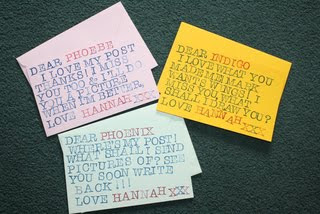 DEAR PHOEBE
I LOVE MY POST
THANKS! I MISS
YOU TOO & I'LL DO
YOU A PICTURE
WHEN I'M BETTER.
LOVE HANNAH XXX
DEAR INDIGO
I LOVE WHAT YOU
MADE ME. MARK
WANTS WINGS! I
MISS YOU. WHAT
SHALL I DRAW YOU?
LOVE HANNAH XXX
DEAR PHOENIX
WHERE'S MY POST!
WHAT SHALL I SEND
PICTURES OF? SEE
YOU SOON WRITE
BACK!!!
LOVE HANNAH XXX